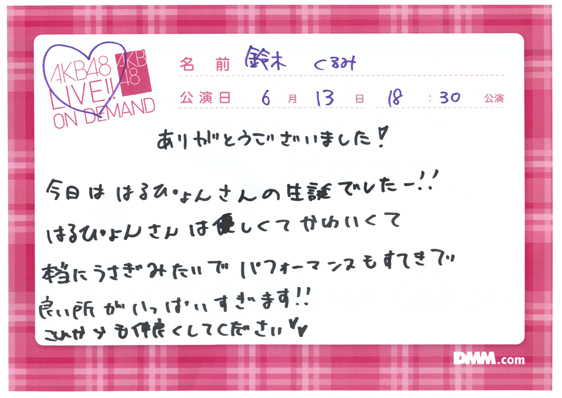 AKB48
LIVE!!
ON DEMAND
AKB
48
名前 鈴木 くるみ
公演日 6月13日 18:30公演
ありがとうございました!
今日は はるぴょんさんの生誕でしたー!!
はるぴょんさんは優しくてかわいくて
本当にうさぎみたいで パフォーマンスもすてきで
良い所がいっぱいすぎます!!
これからも仲良くしてください♥♥
DMM.com